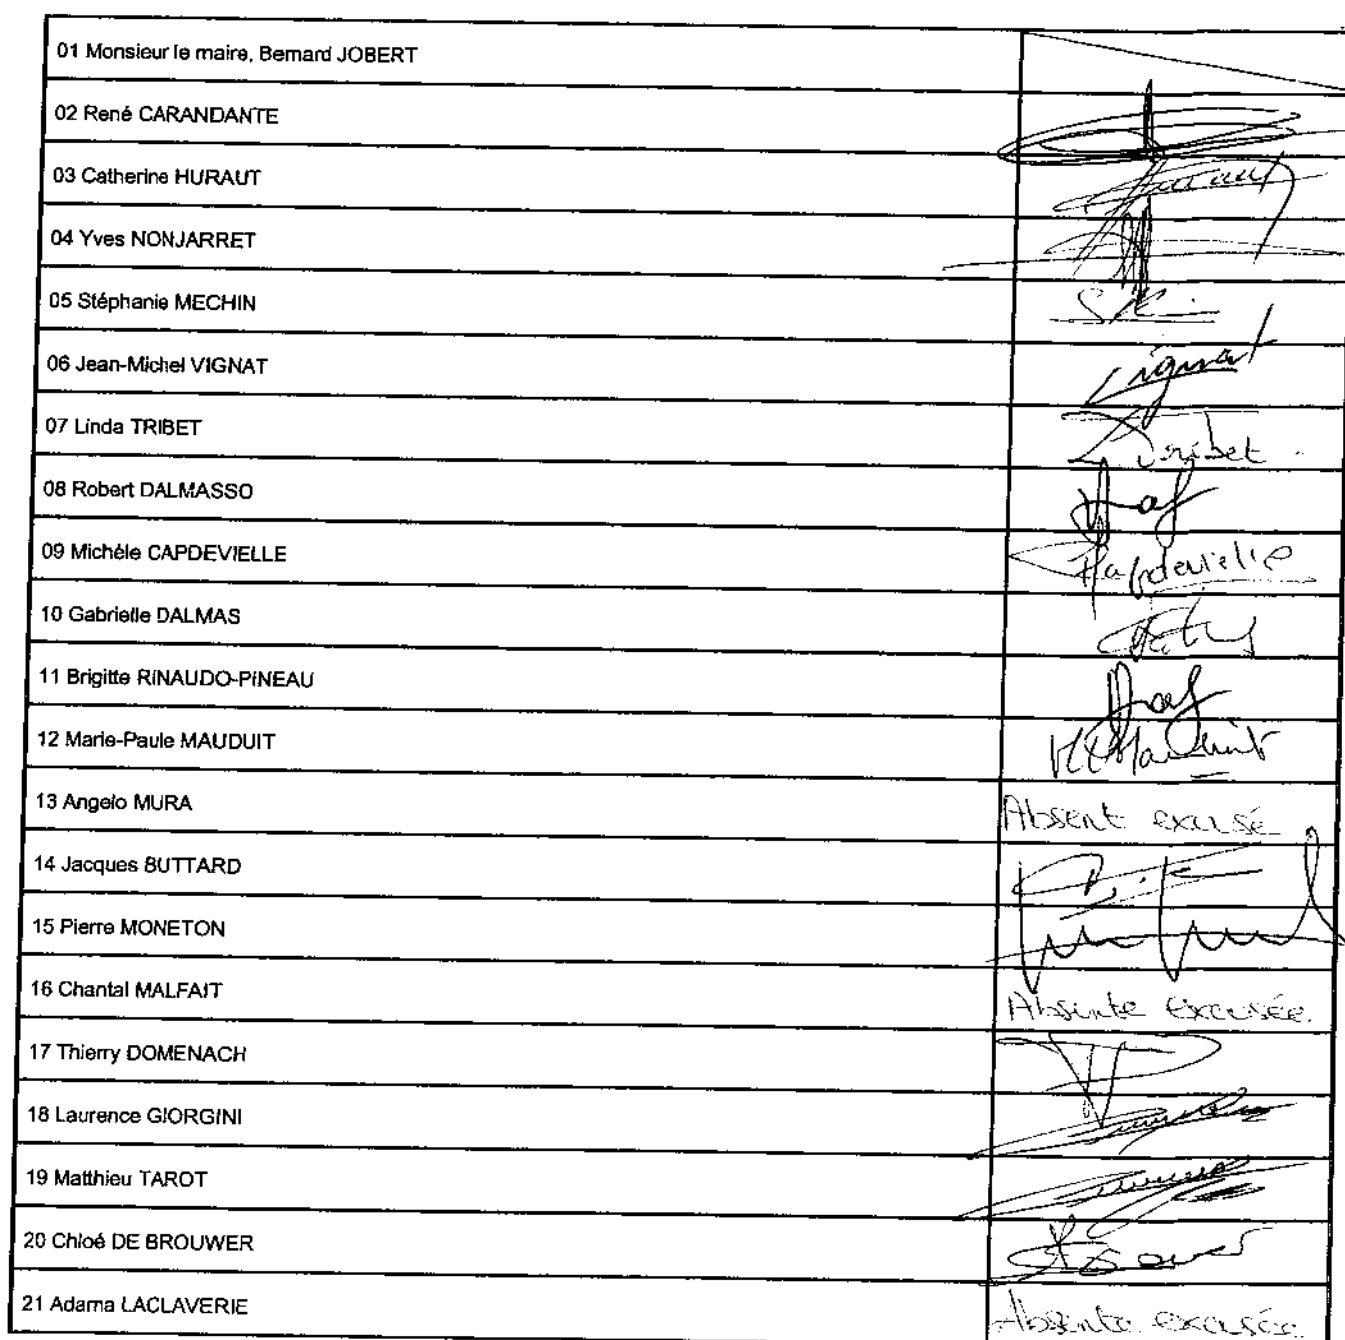 01 Monsieur le maire, Bernard JOBERT
02 René CARANDANTE
03 Catherine HURAUT
04 Yves NONJARRET
05 Stéphanie MECHIN
06 Jean-Michel VIGNAT Vignat
07 Linda TRIBET Tribet
08 Robert DALMASSO
09 Michèle CAPDEVIELLE Capdevielle
10 Gabrielle DALMAS
11 Brigitte RINAUDO-PINEAU
12 Marie-Paule MAUDUIT
13 Angelo MURA Absent excusé
14 Jacques BUTTARD
15 Pierre MONETON
16 Chantal MALFAIT Absente excusée.
17 Thierry DOMENACH
18 Laurence GIORGINI
19 Matthieu TAROT
20 Chloé DE BROUWER
21 Adama LACLAVERIE Absente excusée